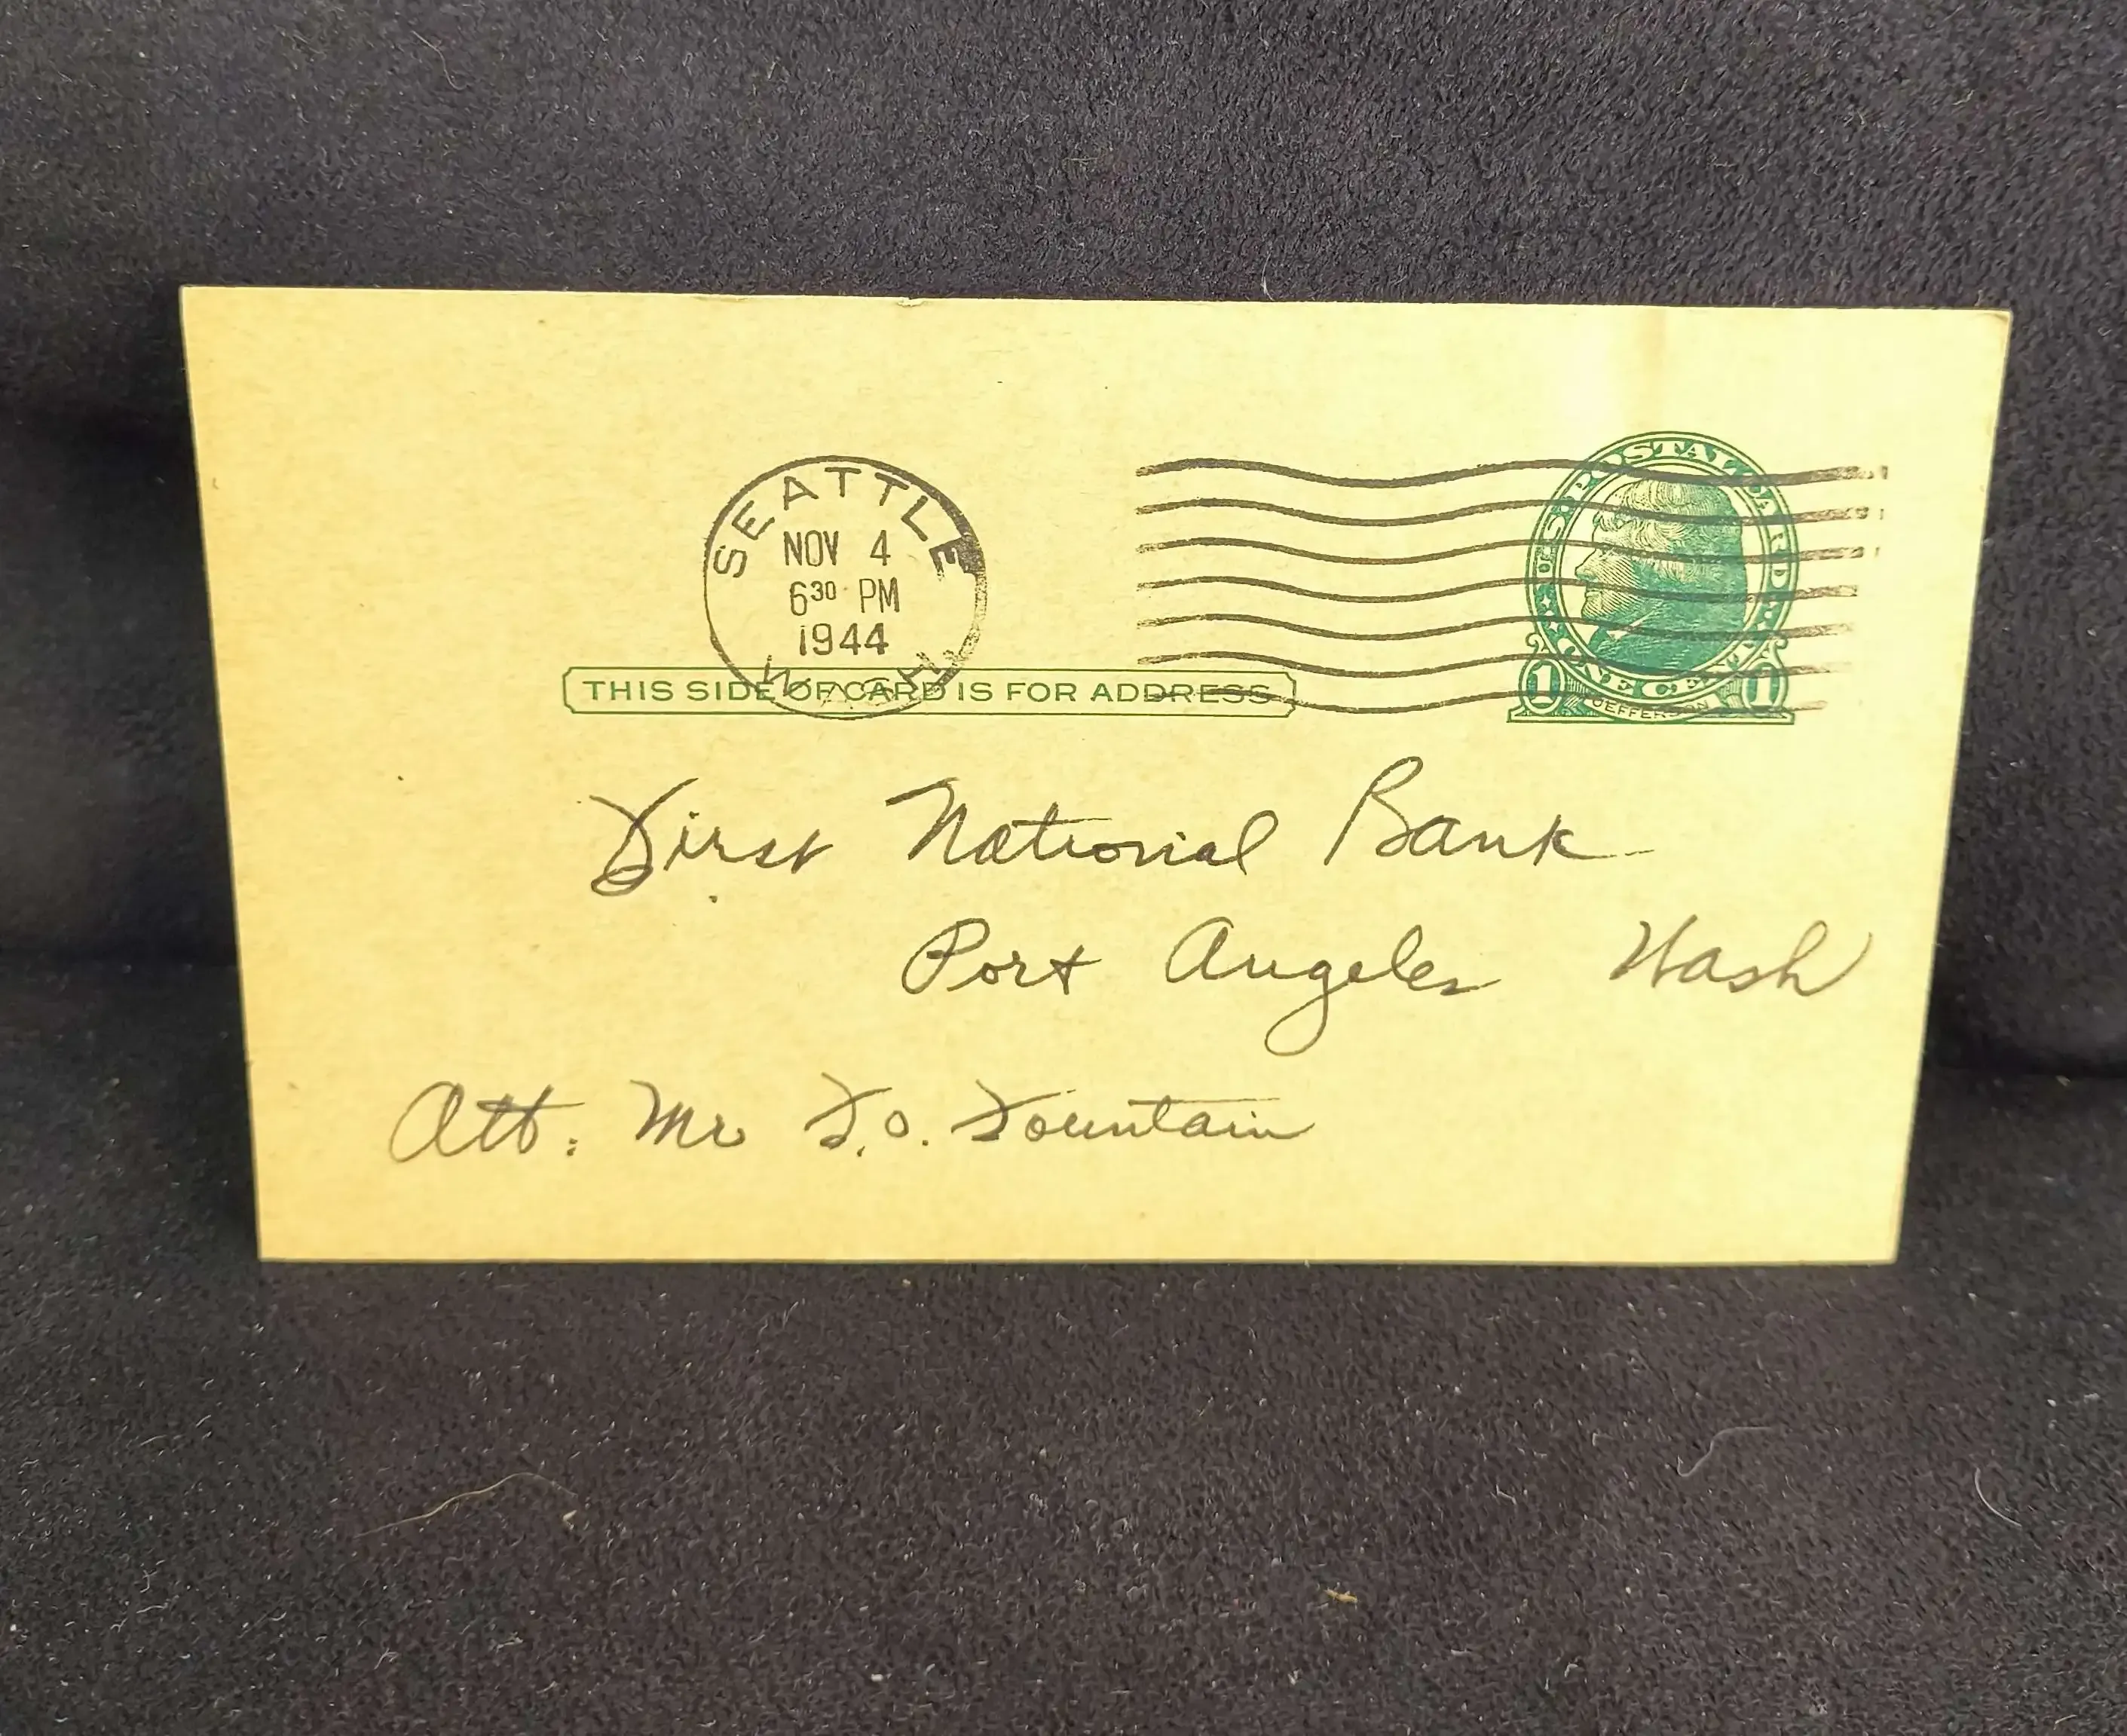 SEATTLE
NOV 4
6³⁰ PM
1944
WASH.
U.S. POSTAL CARD
ONE CENT
1 1
JEFFERSON
THIS SIDE OF CARD IS FOR ADDRESS
First National Bank
Port Angeles Wash
Att: Mr F.O. Fountain